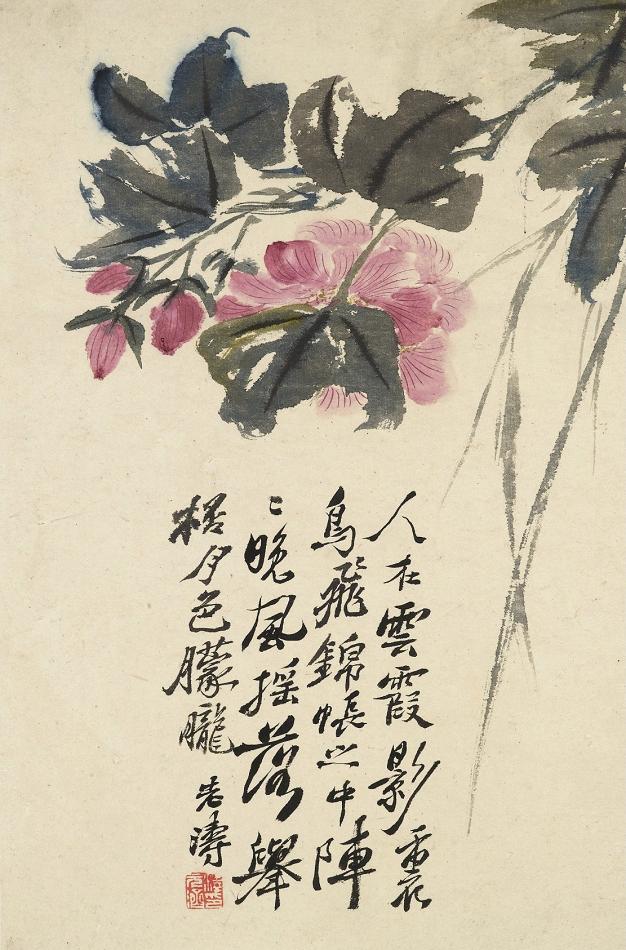 人在雲霞影裏
鳥飛錦帳之中陣
〻晚風摇落舉
桮夕色朦朧
老濤